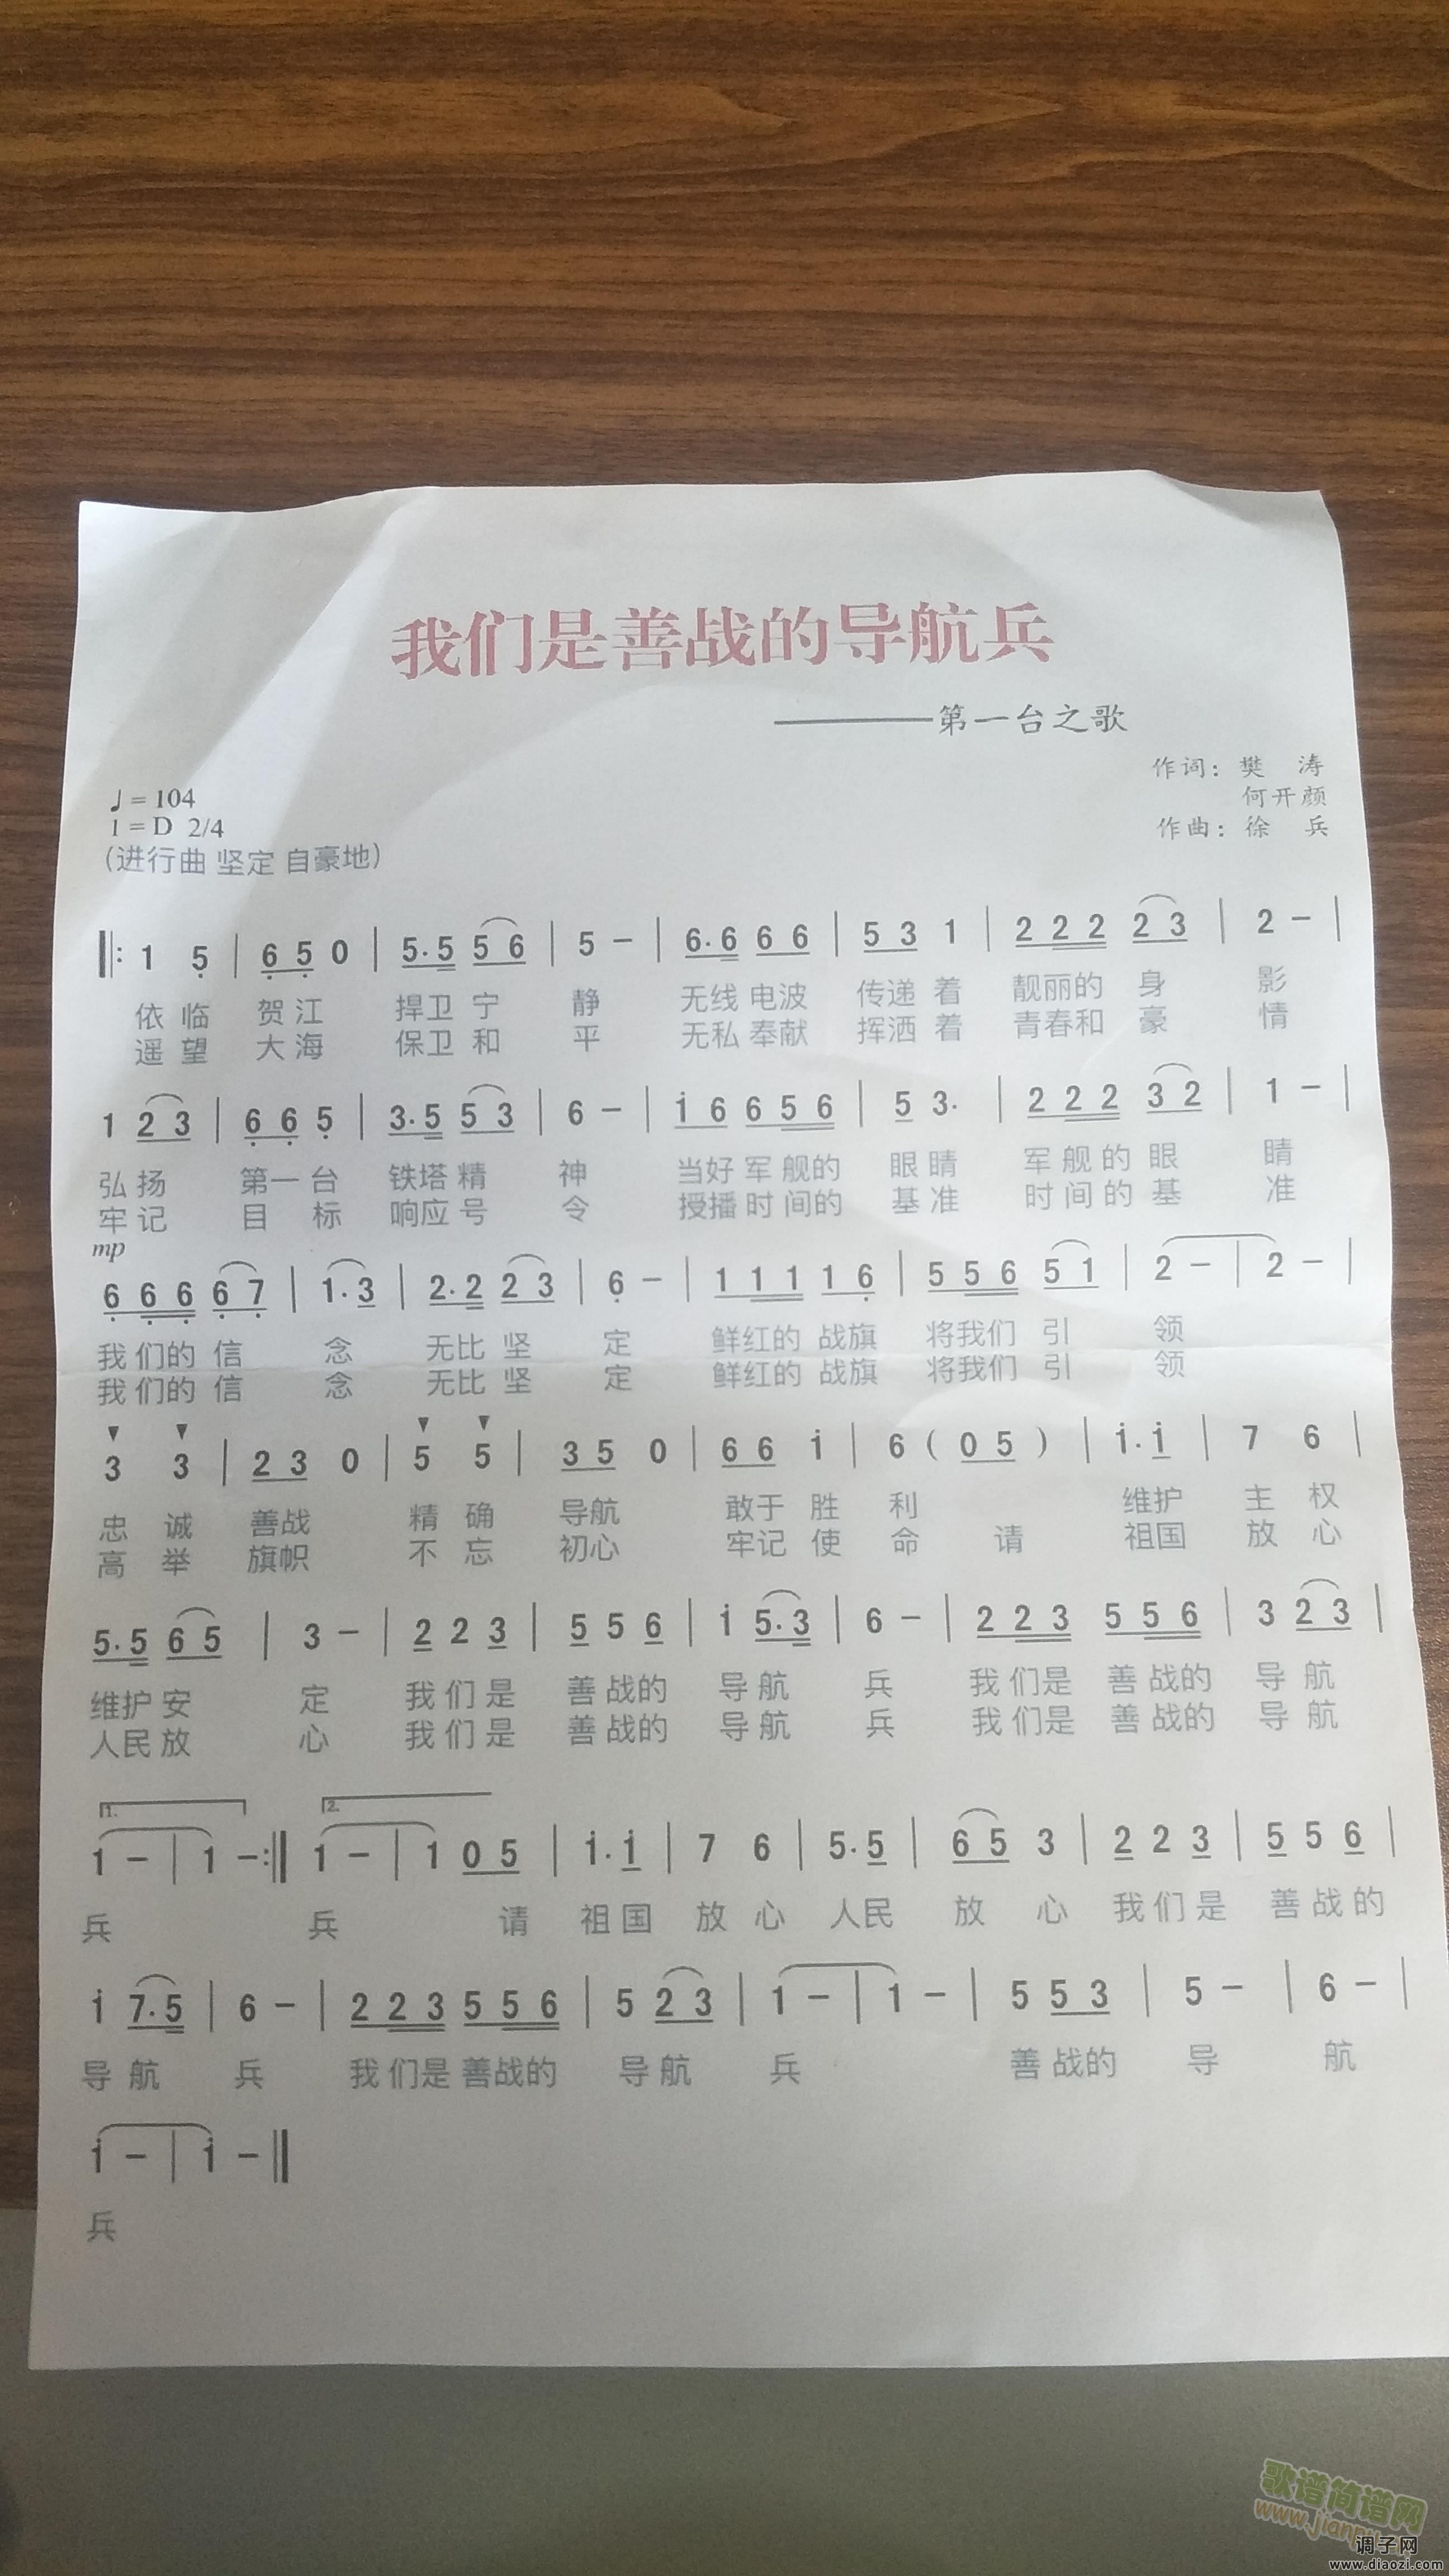 我们是善战的导航兵
————第一台之歌
作词：樊 涛
何开颜
作曲：徐 兵
♩= 104
1 = D 2/4
（进行曲 坚定 自豪地）
‖: 1 5̣ | 6̣ 5̣ 0 | 5.5 5 6 | 5 － | 6.6 6 6 | 5 3 1 | 2 2 2 2 3 | 2 － |
依 临 贺 江 捍卫 宁 静 无线 电波 传递 着 靓丽的 身 影
遥 望 大 海 保卫 和 平 无私 奉献 挥洒 着 青春和 豪 情
1 2 3 | 6̣ 6̣ 5̣ | 3.5 5 3 | 6 － | i 6 6 5 6 | 5 3. | 2 2 2 3 2 | 1 － |
弘 扬 第一 台 铁塔 精 神 当好 军 舰的 眼 睛 军 舰 的 眼 睛
牢 记 目 标 响应 号 令 授播 时 间的 基 准 时 间 的 基 准
mp
6̣ 6̣ 6̣ 6̣ 7̣ | 1.3 | 2.2 2 3 | 6̣ － | 1 1 1 1 6̣ | 5 5 6 5 1 | 2 － | 2 － |
我 们的 信 念 无比 坚 定 鲜红的 战旗 将我们 引 领
我 们的 信 念 无比 坚 定 鲜红的 战旗 将我们 引 领
▼ ▼ ▼ ▼
3 3 | 2 3 0 | 5 5 | 3 5 0 | 6 6 i | 6 ( 0 5 ) | i.i | 7 6 |
忠 诚 善战 精 确 导航 敢于 胜 利 维护 主 权
高 举 旗帜 不 忘 初心 牢记 使 命 请 祖国 放 心
5.5 6 5 | 3 － | 2 2 3 | 5 5 6 | i 5.3 | 6 － | 2 2 3 5 5 6 | 3 2 3 |
维护 安 定 我 们 是 善 战的 导 航 兵 我 们是 善 战的 导 航
人民 放 心 我 们 是 善 战的 导 航 兵 我 们是 善 战的 导 航
1. 2.
1 － | 1 －:‖ 1 － | 1 0 5 | i.i | 7 6 | 5.5 | 6 5 3 | 2 2 3 | 5 5 6 |
兵 兵 请 祖 国 放 心 人民 放 心 我 们 是 善 战 的
i 7.5 | 6 － | 2 2 3 5 5 6 | 5 2 3 | 1 － | 1 － | 5 5 3 | 5 － | 6 － |
导 航 兵 我 们是 善战的 导 航 兵 善 战的 导 航
i － | i －‖
兵
歌谱简谱网
www.jianpu
调子网
www.diaozi.com